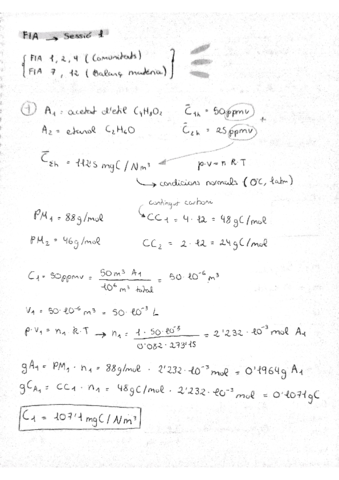 FIA → Sessió 1
FIA 1, 2, 4 (Comunitats)
FIA 7, 12 (Balanç matèria)
① A₁ = acetat d'etil C₄H₈O₂ C̄₁ₕ = 50 ppmv
A₂ = etanol C₂H₆O C̄₂ₕ = 25 ppmv
C̄₂ₕ = 112'5 mgC / Nm³ p·v = n R·T
condicions normals (0°C, 1atm)
contingut carboni
PM₁ = 88 g/mol CC₁ = 4·12 = 48 gC/mol
PM₂ = 46 g/mol CC₂ = 2·12 = 24 gC/mol
C₁ = 50 ppmv = 50 m³ A₁ / 10⁶ m³ total = 50·10⁻⁶ m³
V₁ = 50·10⁻⁶ m³ = 50·10⁻³ L
p·V₁ = n₁ R·T → n₁ = 1·50·10⁻³ / 0'082·273'15 = 2'232·10⁻³ mol A₁
gA₁ = PM₁ · n₁ = 88 g/mol · 2'232·10⁻³ mol = 0'1964 g A₁
gC A₁ = CC₁ · n₁ = 48 gC/mol · 2'232·10⁻³ mol = 0'1071 gC
C₁ = 107'1 mgC / Nm³